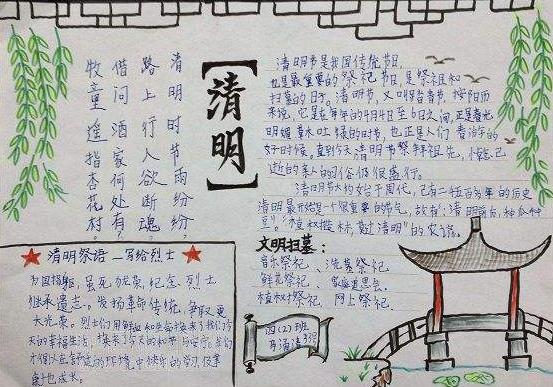 清明时节雨纷纷，
路上行人欲断魂。
借问酒家何处有，
牧童遥指杏花村。
【清明】
清明节是我国传统节日，
也是最重要的祭祀节日，是祭祖和
扫墓的日子。清明节，又叫踏青节，按阳历
来说，它是在每年的4月4日至6日之间，正是春光
明媚草木吐绿的时节，也正是人们春游的
好时候，直到今天清明节祭拜祖先，悼念已
逝的亲人的习俗仍很盛行。
清明节大约始于周代，已有二千五百多年的历史
清明最开始是一个很重要的节气，故有："清明前后，种瓜种
豆"。"植树造林，莫过清明"的农谚。
文明扫墓：
音乐祭祀、洗墓祭祀
鲜花祭祀、家庭追思会
植树祭祀、网上祭祀
清明祭语—写给烈士
为国捐躯，虽死犹荣，纪念烈士
继承遗志。发扬革命传统，争取更
大光荣。烈士们用鲜血和生命换来了我们今
天的幸福生活，
四(2)班